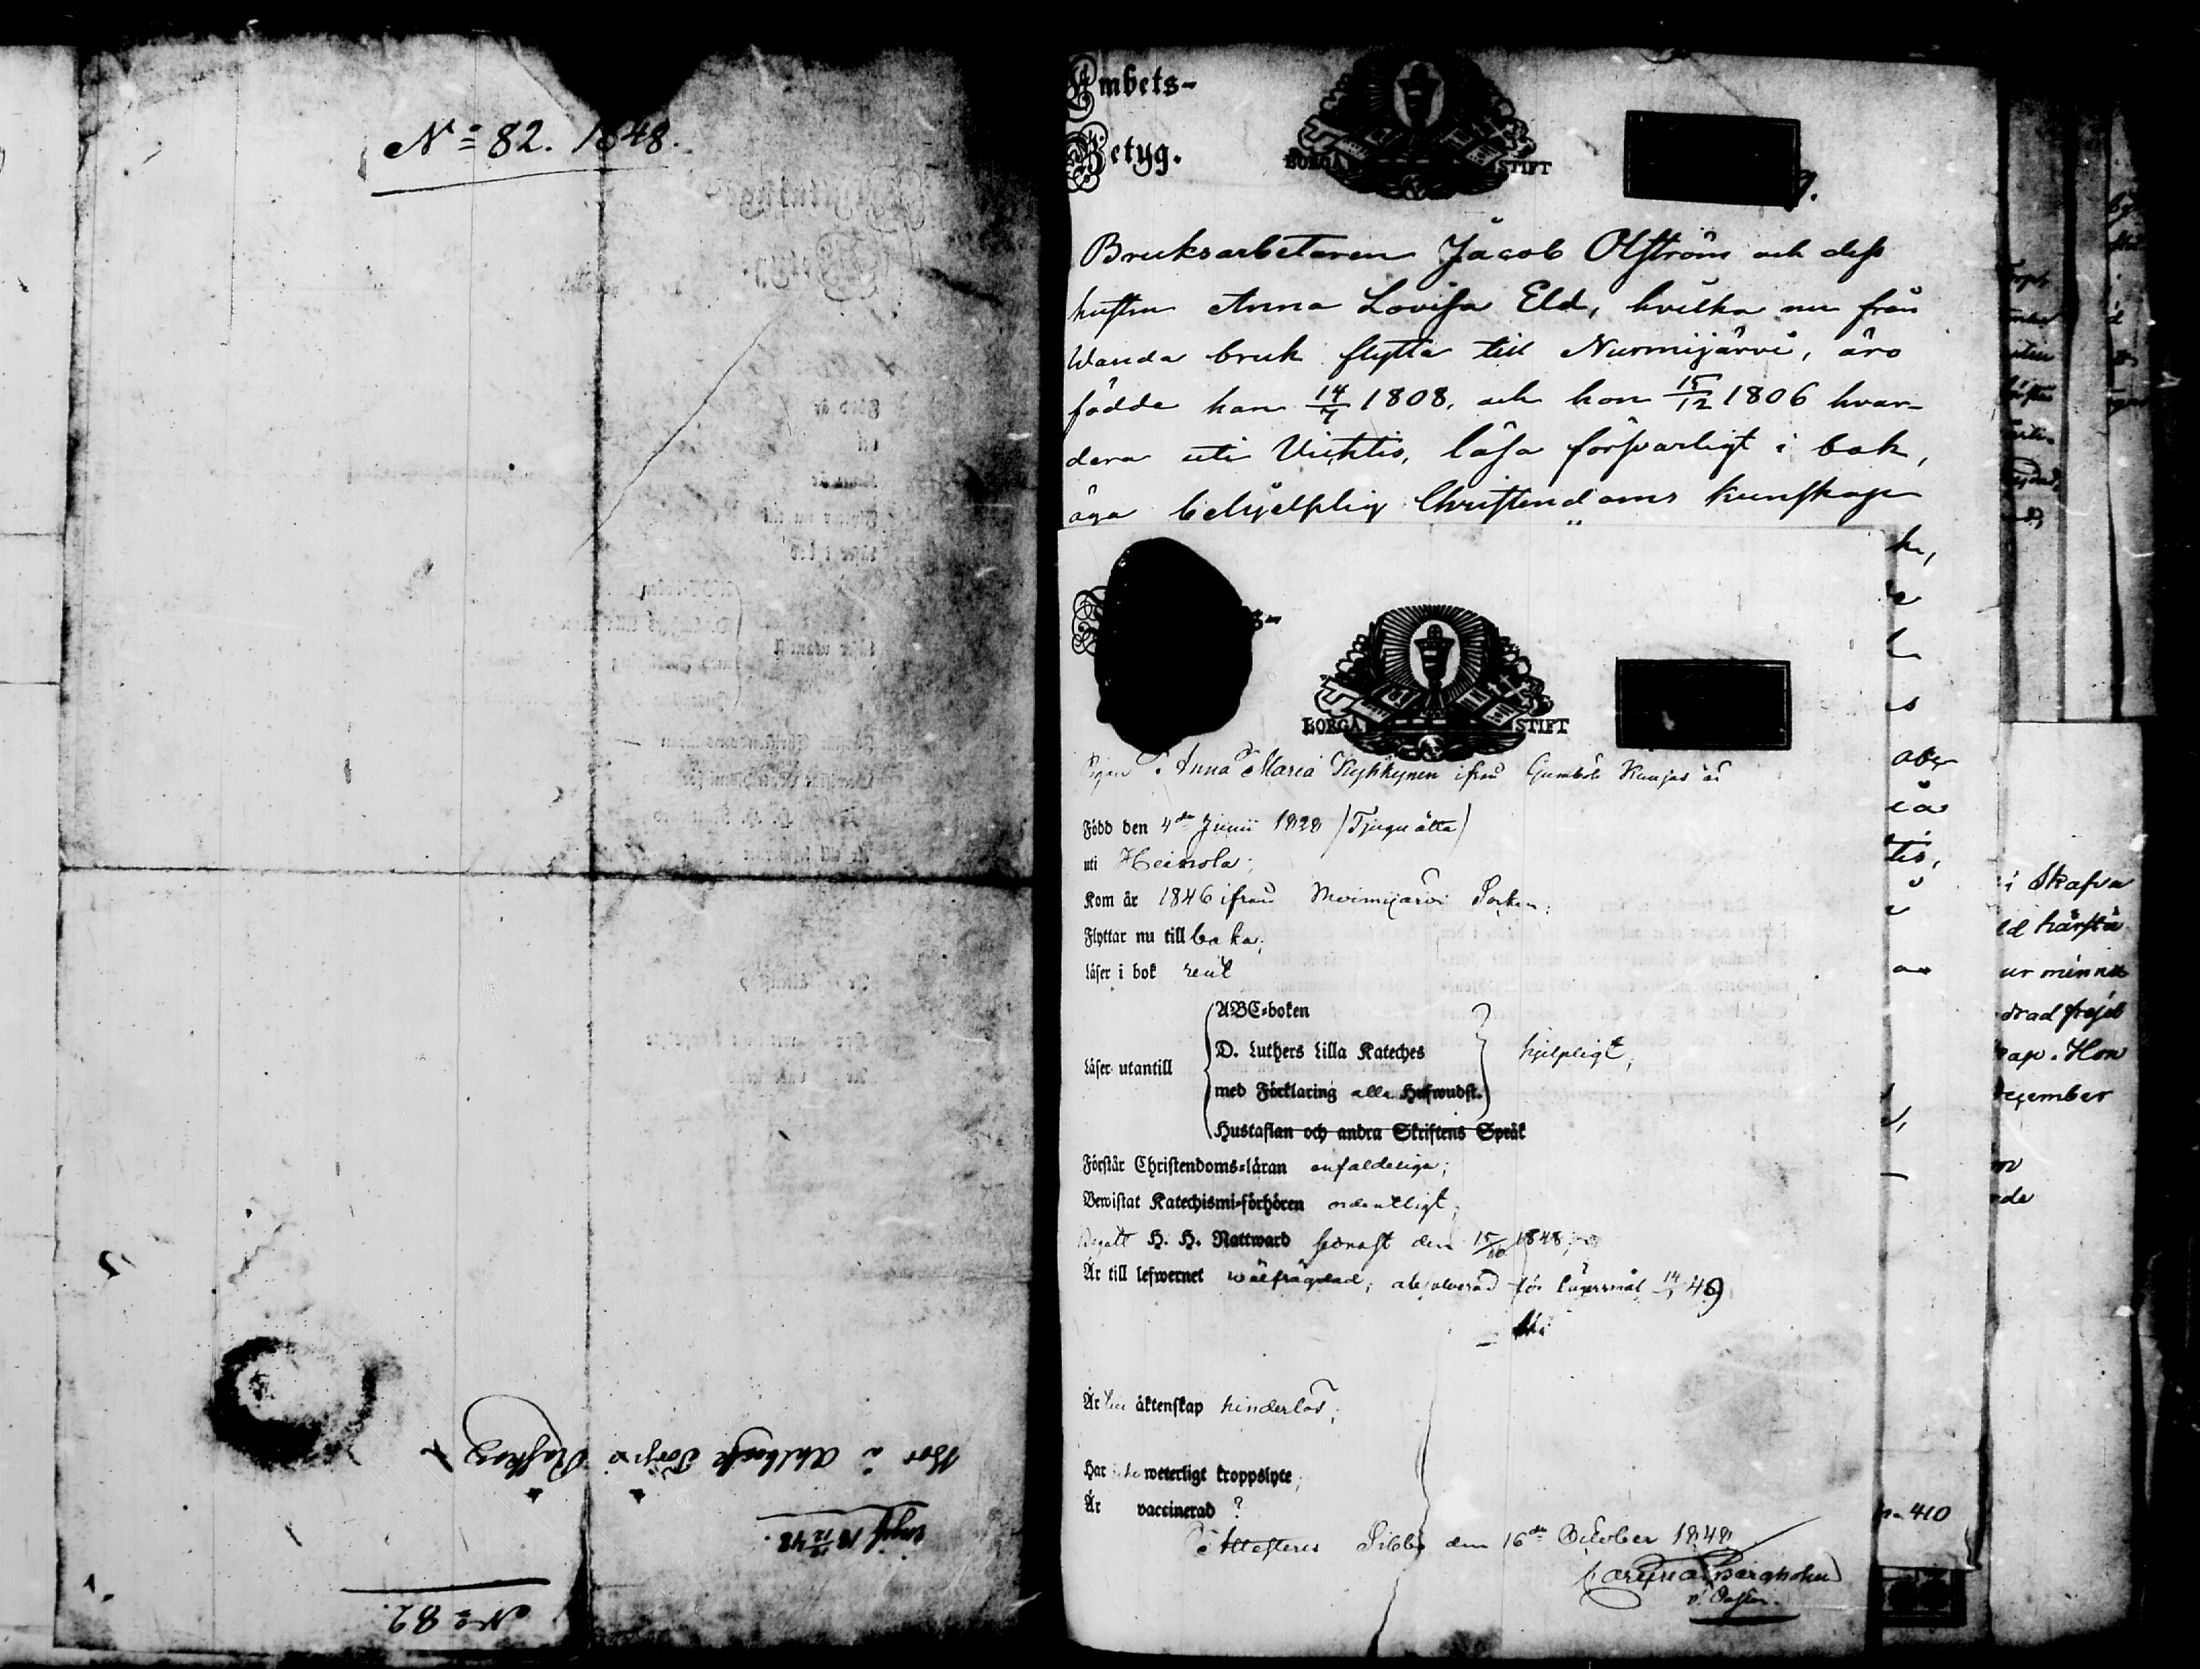 No 82. 1848.
Bor å Ahlbacka Torp i Raskog
ingif. 18 12/12 48.
No 82.
Embets-
Betyg.
BORGÅ STIFT
Bruksarbetaren Jacob Olström och dess
hustru Anna Lovisa Eld, hvilka nu från
Wanda bruk flytta till Nurmijärvi, äro
födde han 14/7 1808, och hon 15/12 1806 hvar-
dera uti Vichtis, läsa försvarligt i bok,
äga behjelplig Christendoms kunskap
BORGÅ STIFT
Pigan Anna Maria Kykkynen ifrån Gumbole är
Född den 4de Junii 1828 (Tjuguåtta)
uti Heinola;
Kom år 1846 ifrån Nurmijärvi Socken;
Flyttar nu till
läser i bok rent
läser utantill
ABC-boken
D. Luthers lilla Kateches
med Förklaring alla Hufwudst.
hjelpligt;
Hustaflan och andra Skriftens Språk
Förstår Christendoms-läran enfaldeliga;
Bewistat Katechismi-förhören ordentligt;
Begått H. H. Nattward senast den 15/10 1848;
Är till lefwernet wälfrägdad; absolverad för lägersmål 14/1 46)
Är till äktenskap hinderlös;
Har icke weterligt kroppslyte;
Är vaccinerad ?
Attesteras Sibbo den 16de October 1848
Bergholm
v. Pastor.
k,
tis,
410
i Skafva
ld härstä
ur minne
drad frejd
kap. Hon
December